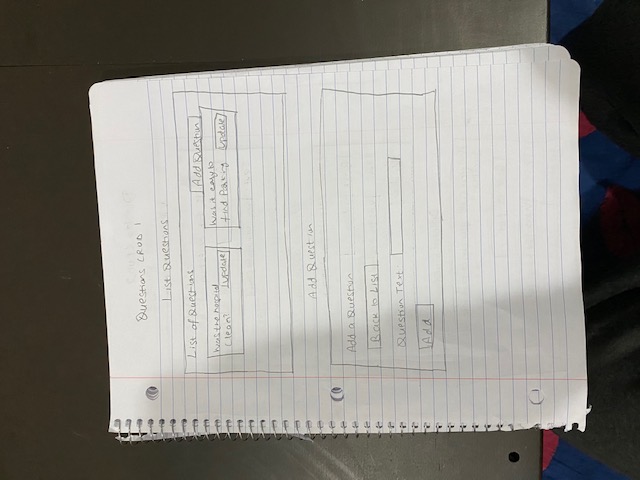 Questions CRUD 1
List Questions
List of Questions
Add Question
Was the hospital
clean?
Update
Was it easy to
find Parking
Update
Add Question
Add a Question
Back to List
Question Text
Add